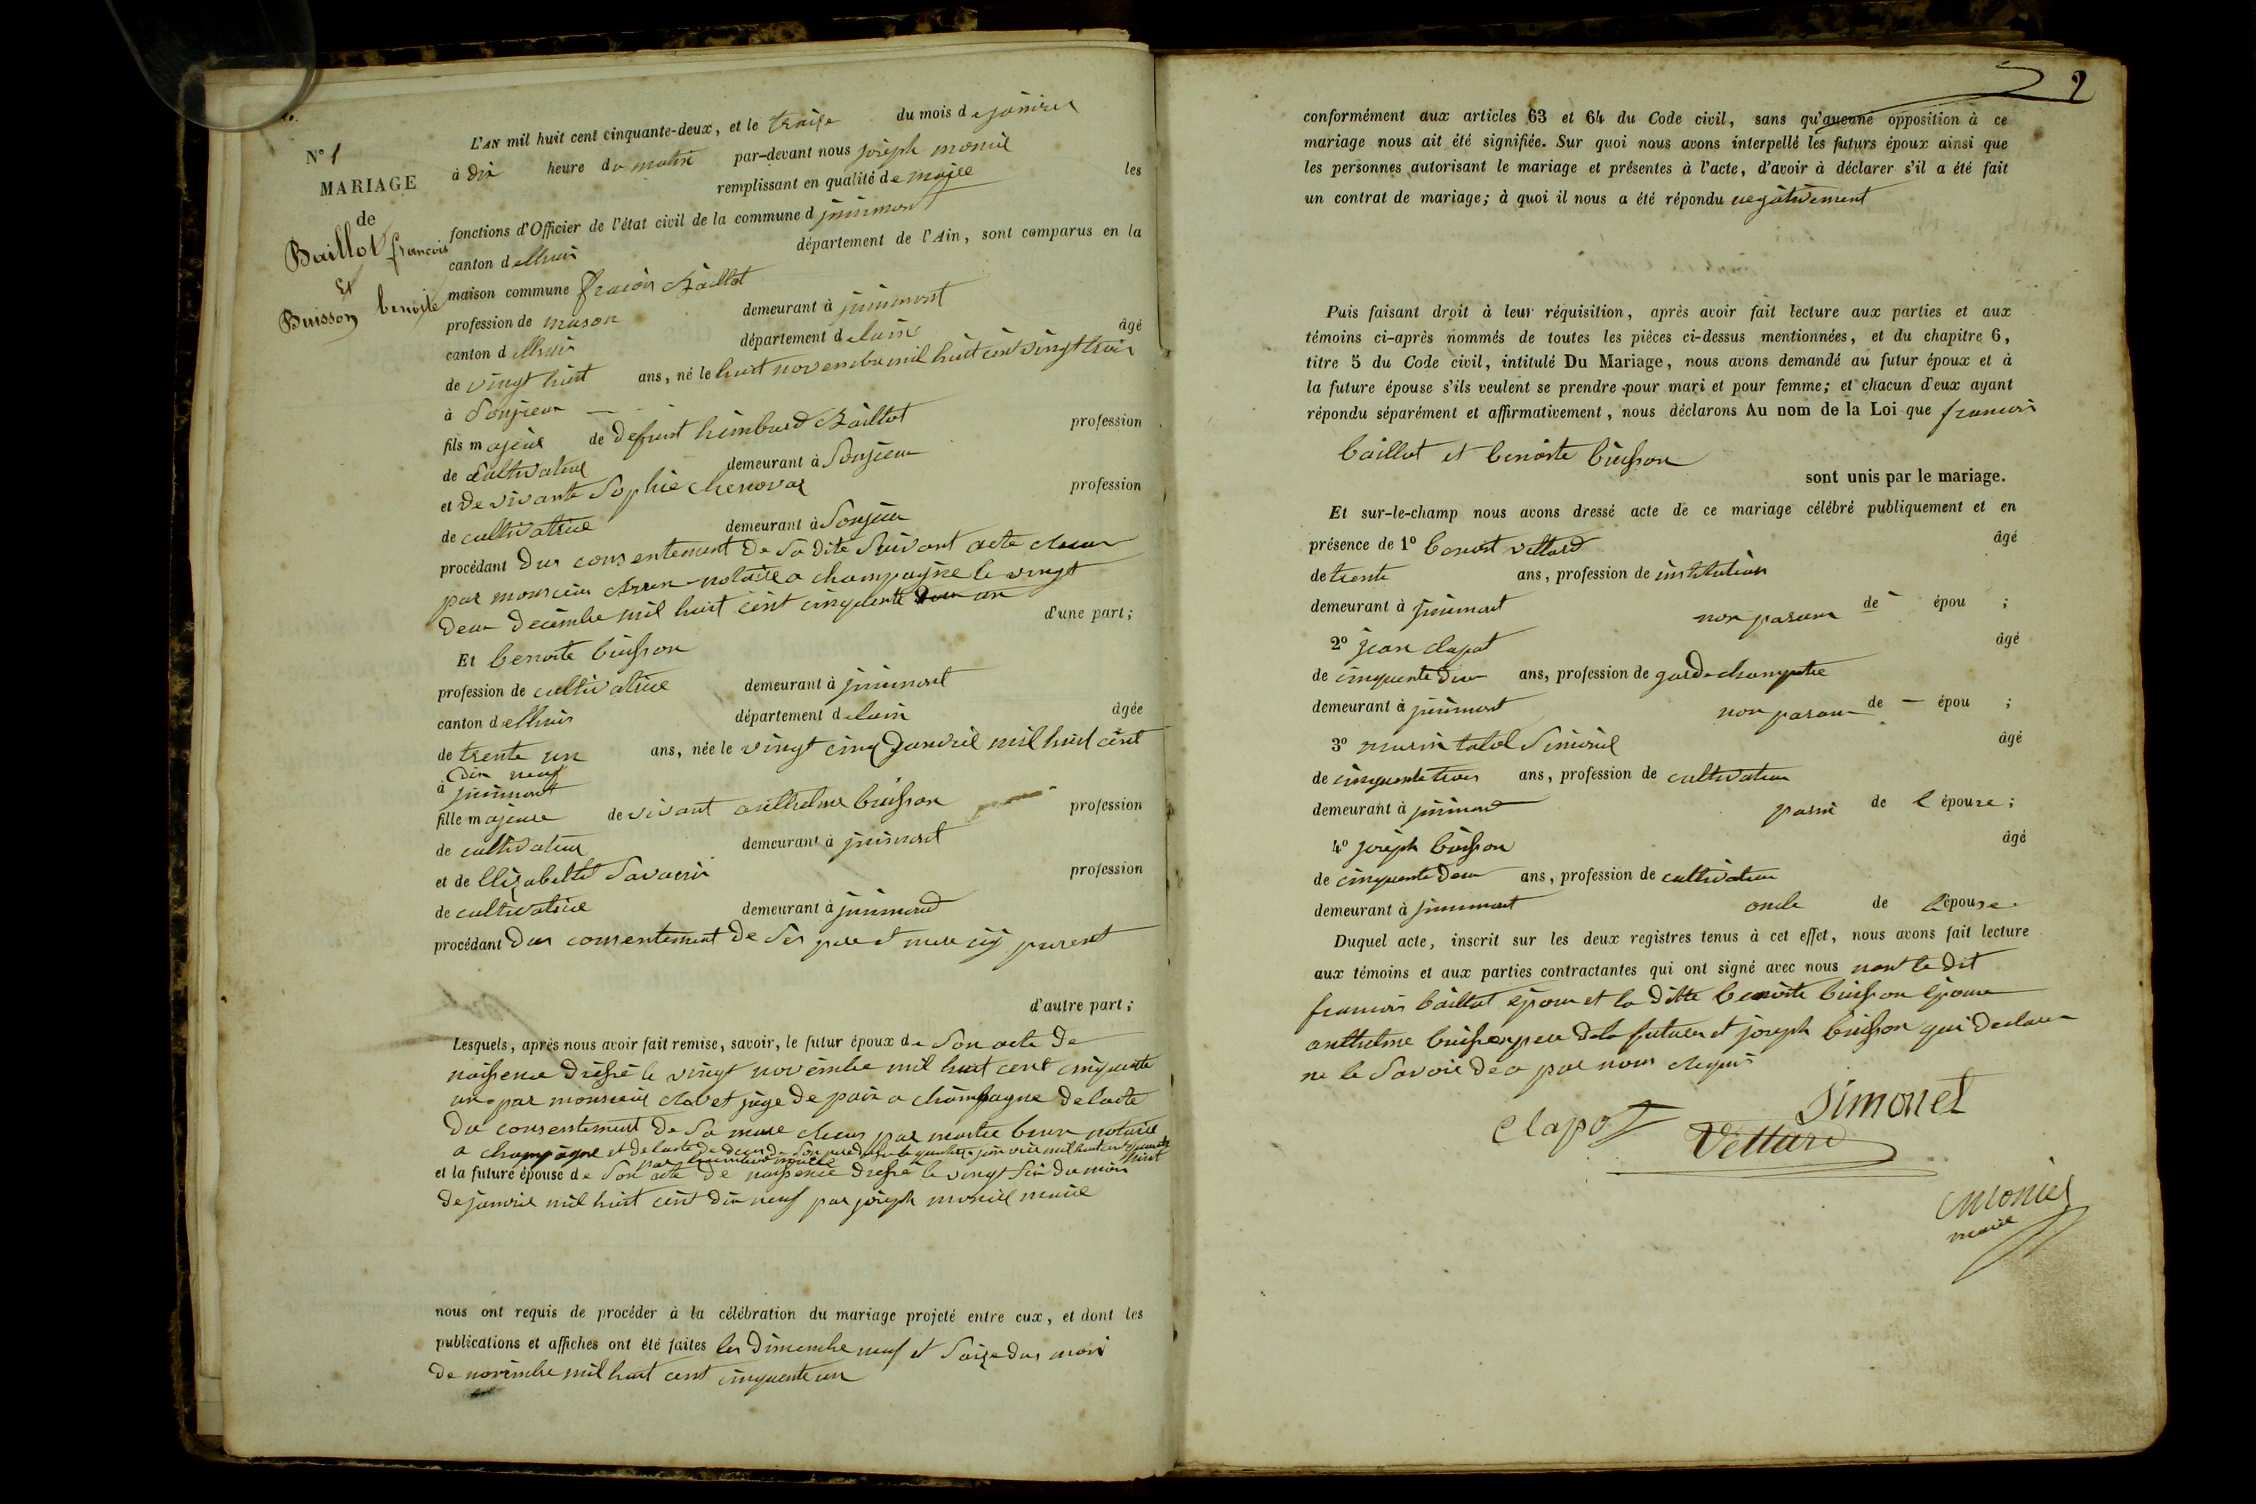 N° 1
MARIAGE
de
Baillot francois
Et
Buisson benoite
L'AN mil huit cent cinquante-deux, et le traize du mois de janvier
à dix heure du matin par-devant nous joseph monier
remplissant en qualité de maire les
fonctions d'Officier de l'état civil de la commune d jujurmont
canton d elhuis département de l'Ain, sont comparus en la
maison commune francois Baillot
profession de mason demeurant à
canton d elhuis département d elain âgé
de vingt huit ans, né le huit novembre mil huit cent vingt trois
à Sonjieux
fils majeur de defunt himberd Baillot profession
de Cultivateur demeurant à Sonjieux
et de vivante Sophie chenovas profession
de cultivatrice demeurant à Sonjieux
procédant dus consentement de sa dite suivant acte
par monsieur notaire a champagne le vingt
deux decembre mil huit cent cinquante un d'une part;
Et benoite buisson
profession de cultivatrice demeurant à
canton d elhuis département d elain âgée
de trente un ans, née le vingt cinq Janvier mil huit cent
dix neuf
à
fille majeure de vivant anthelme buisson profession
de cultivateur demeurant à
et de Elizabette Savarin profession
de cultivatrice demeurant à
procédant dus consentement de ses pere et mere icy present
d'autre part;
Lesquels, après nous avoir fait remise, savoir, le futur époux de Son acte de
naissence dressé le vingt novembre mil huit cent cinquante
un par monsieur clavet juge de paix a champagne de lacte
du consentement de Sa mere par maitre brun notaire
a champagne et de lacte de deces de Son pere
et la future épouse de Son acte de naissence dressé le vingt six du mois
de janvier mil huit cent dix neuf par joseph monier maire
nous ont requis de procéder à la célébration du mariage projeté entre eux, et dont les
publications et affiches ont été faites les dimenche neuf et Saize dus mois
de novembre mil huit cent cinquante un
2
conformément aux articles 63 et 64 du Code civil, sans qu'aucune opposition à ce
mariage nous ait été signifiée. Sur quoi nous avons interpellé les futurs époux ainsi que
les personnes autorisant le mariage et présentes à l'acte, d'avoir à déclarer s'il a été fait
un contrat de mariage; à quoi il nous a été répondu negativement
Puis faisant droit à leur réquisition, après avoir fait lecture aux parties et aux
témoins ci-après nommés de toutes les pièces ci-dessus mentionnées, et du chapitre 6,
titre 5 du Code civil, intitulé Du Mariage, nous avons demandé au futur époux et à
la future épouse s'ils veulent se prendre pour mari et pour femme; et chacun d'eux ayant
répondu séparément et affirmativement, nous déclarons Au nom de la Loi que francois
baillot et benoite buisson
sont unis par le mariage.
Et sur-le-champ nous avons dressé acte de ce mariage célébré publiquement et en
présence de 1° benoit vettard âgé
de trente ans, profession de
demeurant à non parans de épou ;
2° jean clapot âgé
de cinquente deux ans, profession de garde champetre
demeurant à non parans de — épou ;
3° âgé
de cinquente trois ans, profession de cultivateur
demeurant à de l épouze ;
4° joseph buisson âgé
de cinquente deux ans, profession de cultivateur
demeurant à oncle de l'épouse
Duquel acte, inscrit sur les deux registres tenus à cet effet, nous avons fait lecture
aux témoins et aux parties contractantes qui ont signé avec nous non le dit
francois baillot epoux et la ditte benoite buisson epouse
anthelme buisson pere dela future et joseph buisson qui declare
ne le Savoir de a par nous requis
Simonet
Clapot
Vettard
Monier
maire